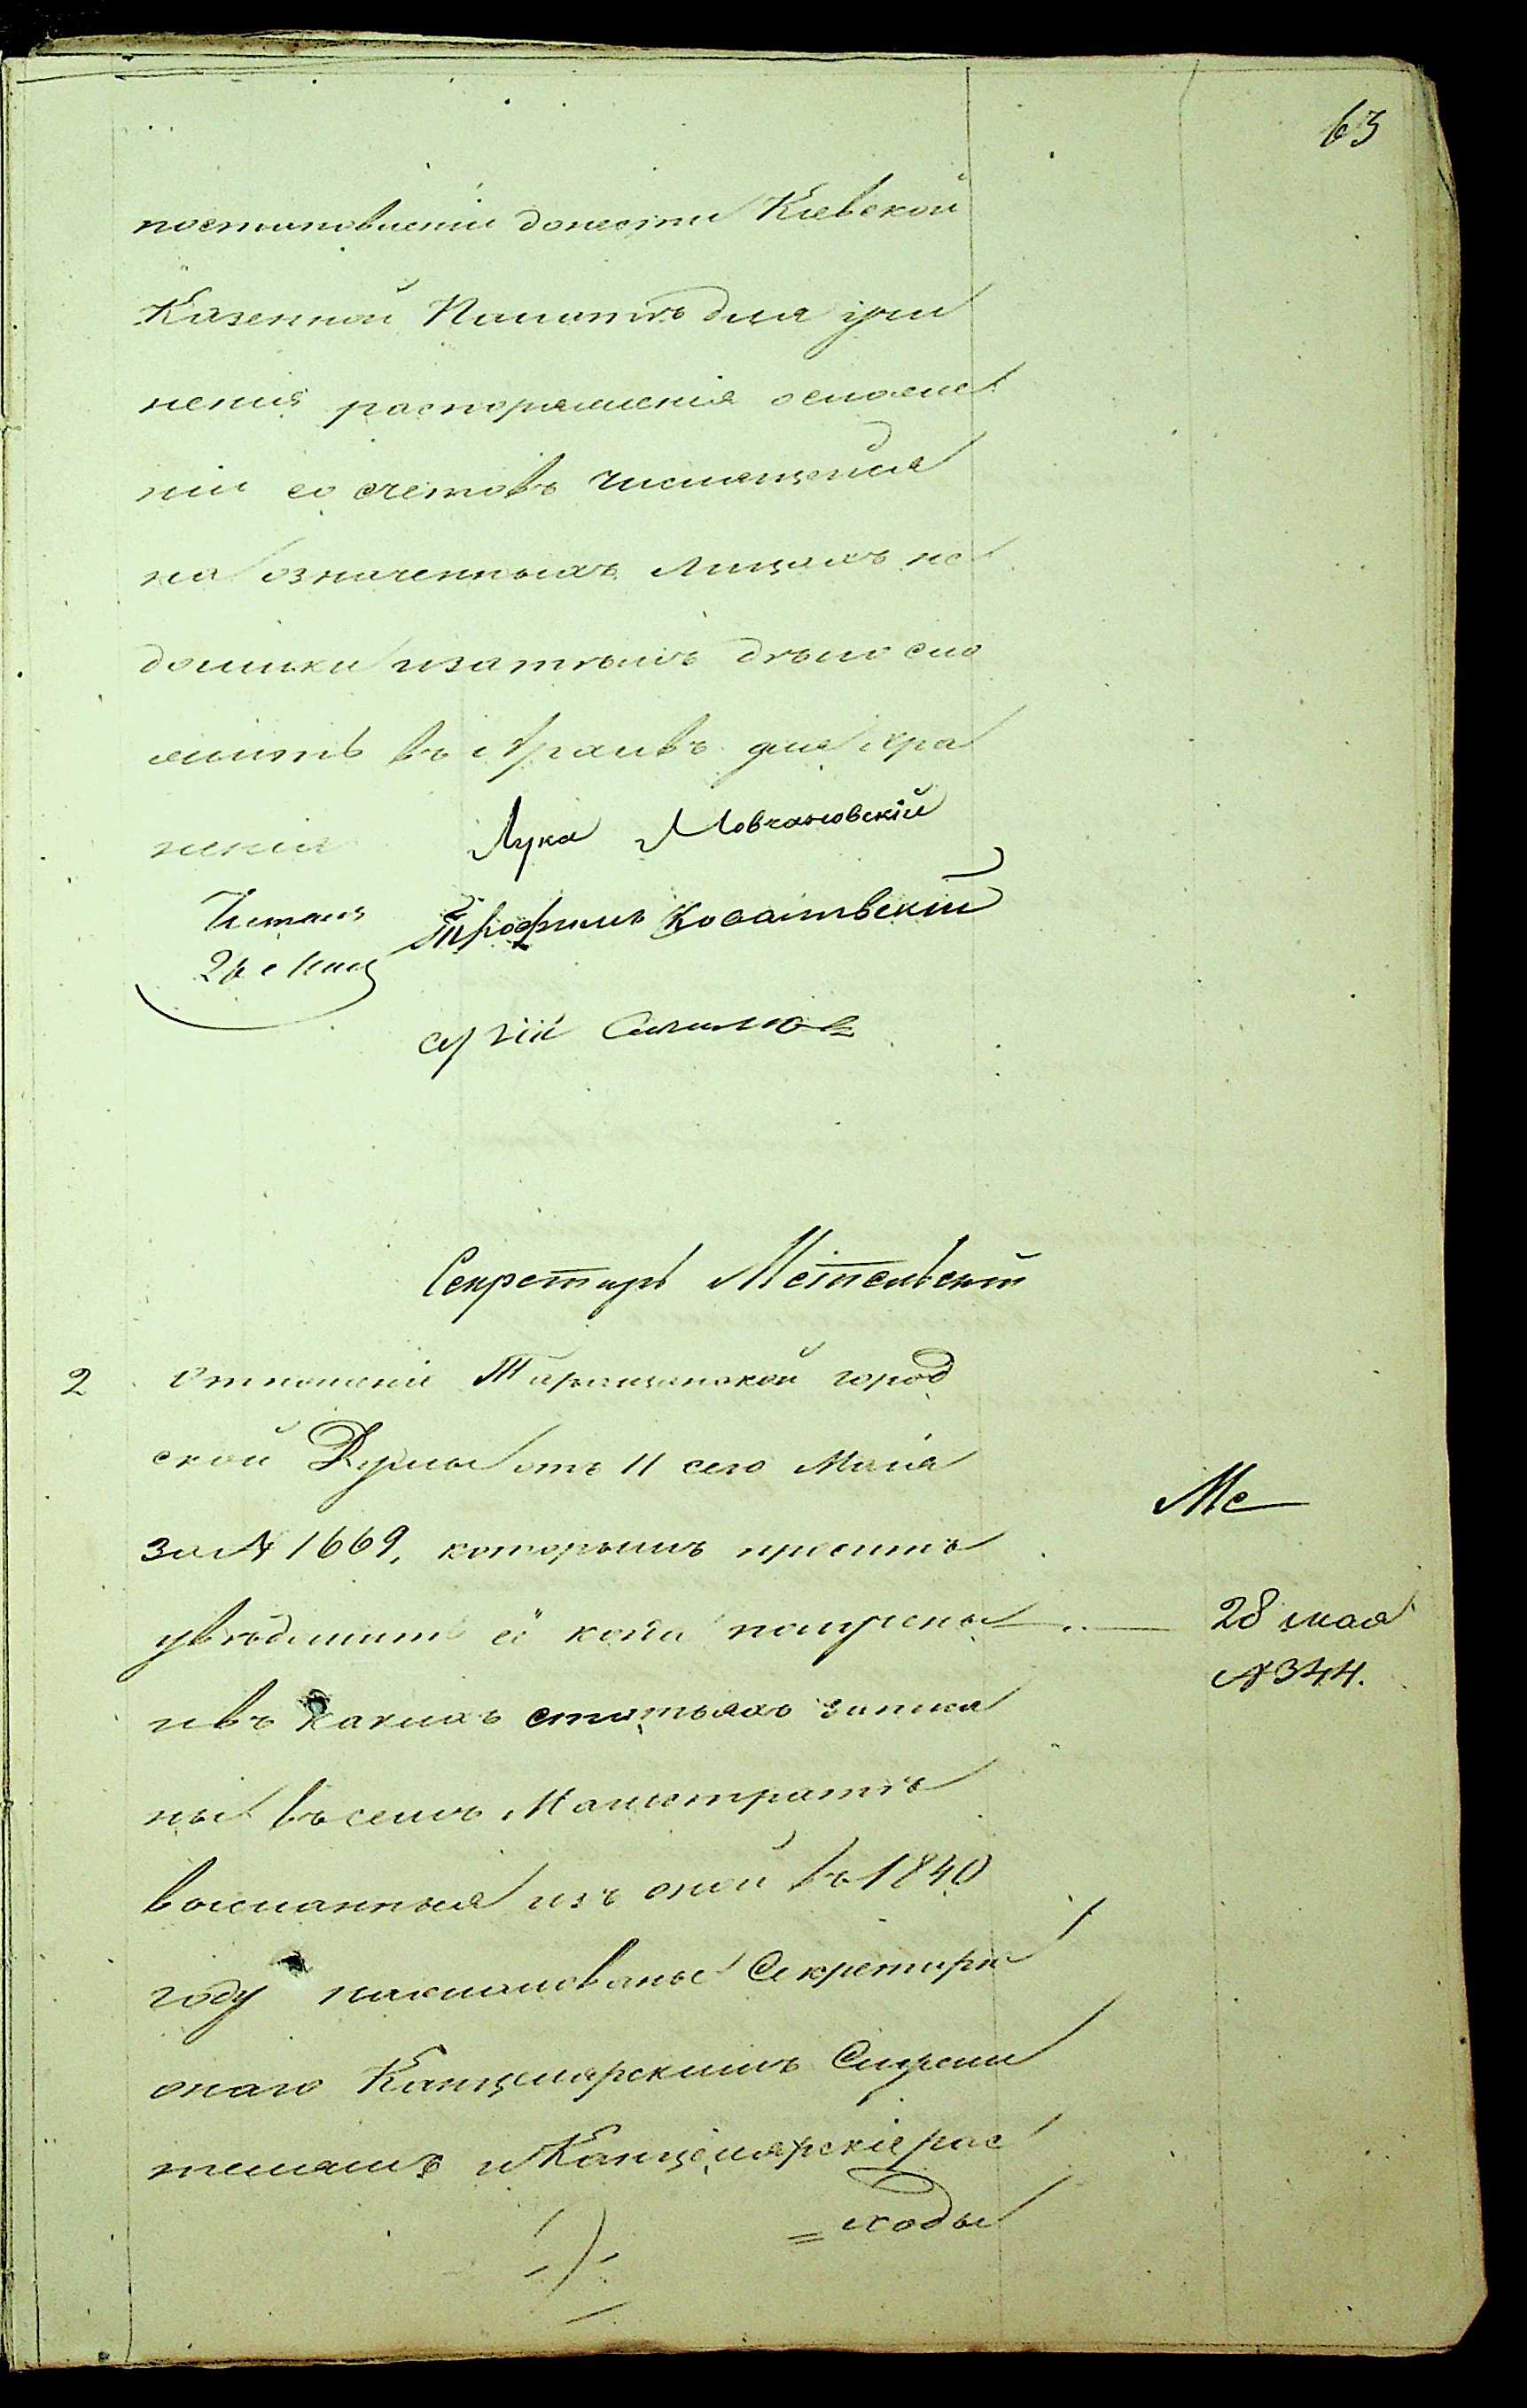 63
постановленіи донести Кіевской
Казенной Палатѣ для учи
ненія распоряженія осложе
ніи со счетовъ числящейся
на означенныхъ лицахъ не
доимки изатѣмъ дѣло сло
жить въ Архивъ для хра
ненія
Лука Мовчановскій
Читалъ
Трофимъ
Сергій
Секретарь Метельскій
2 Отношеніе Таращанской город
ской Думы отъ 11 сего Маія
за № 1669, которымъ проситъ
увѣдомить её когда получены
ивъ какихъ статьяхъ записа
ны въ семъ Магистратѣ
высланныя изъ оной въ 1840
году на жалованье Секретарю
онаго Канцелярскимъ Служи
телямъ и Канцелярскіе рас
=ходы
Ме
28 мая
№ 344.